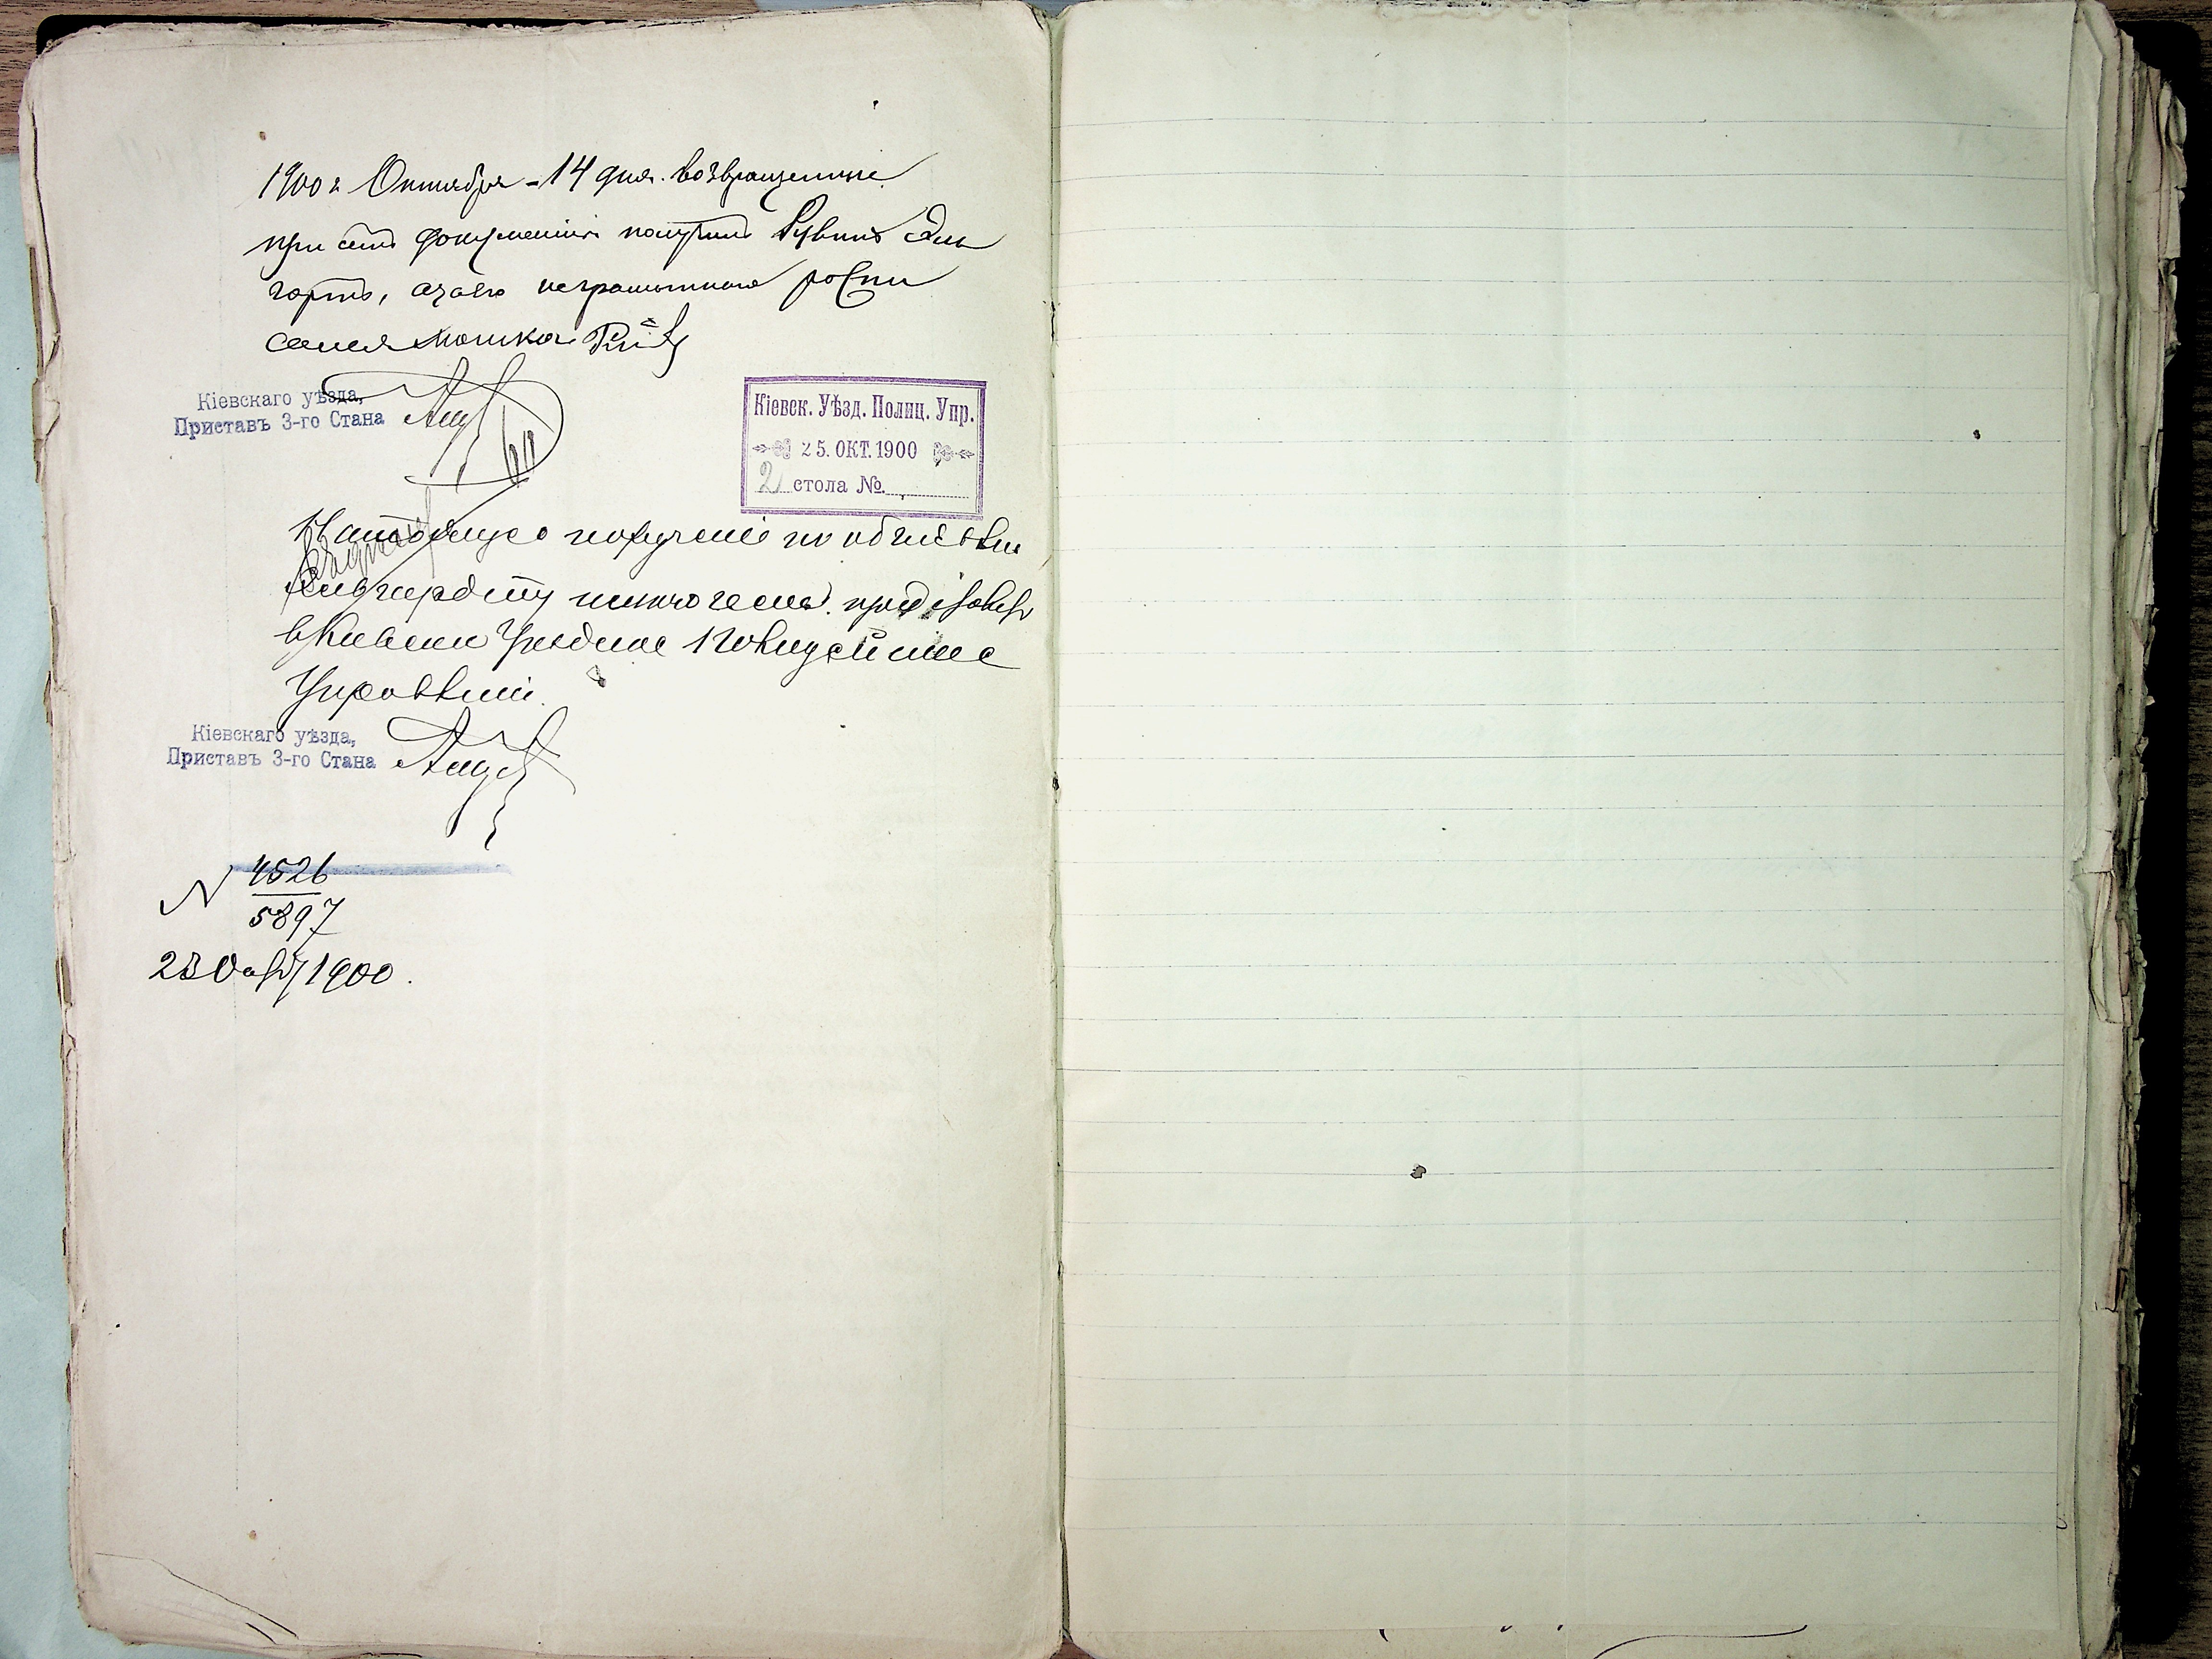 1900 г Октября - 14 дня. возвращенные
при семъ документы получилъ Рувинъ Эин
гортъ, а за его неграмотного роспи
сался Мошко
Кіевскаго уѣзда,
Приставъ 3-го Стана
Кіевск. Уѣзд. Полиц. Упр.
25. ОКТ. 1900
2 стола №
Настоящее порученіе по объявленіи
представ
въ Киевское Уѣздное Полицейское
Управленіе.
Кіевскаго уѣзда,
Приставъ 3-го Стана
N 4526
5897
23 Октяб 1900.